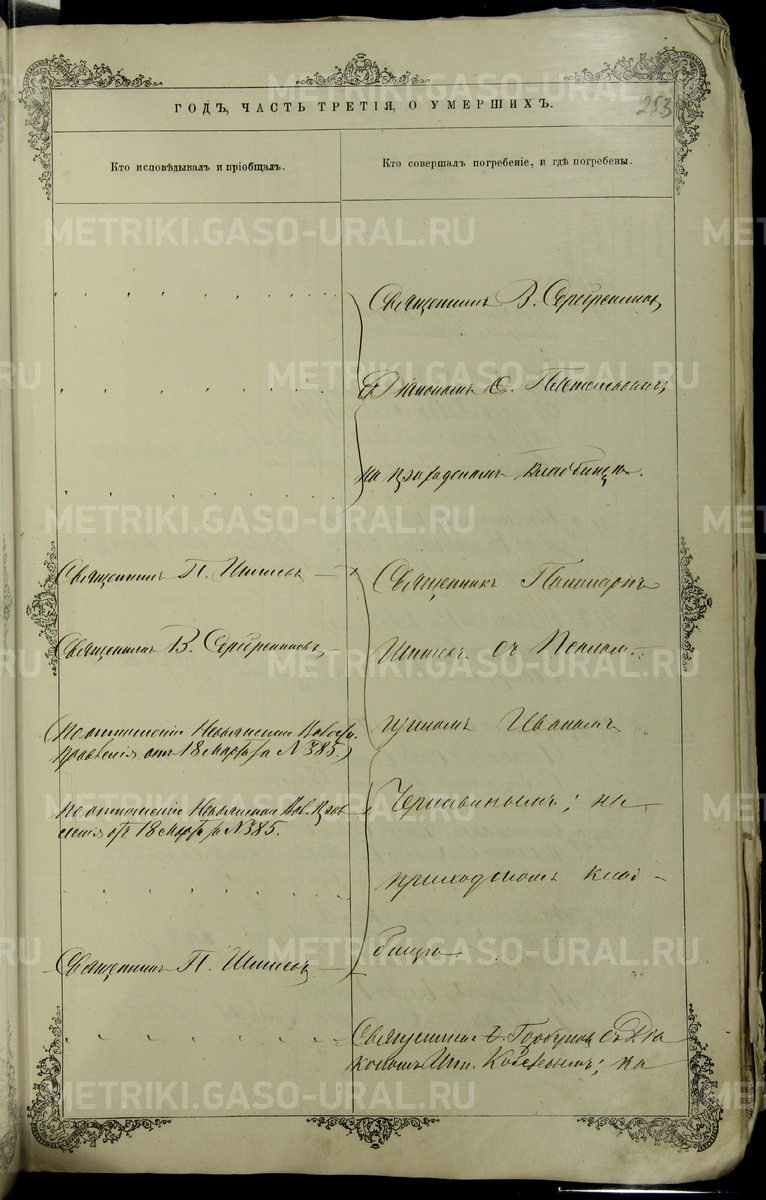 253
ГОДЪ, ЧАСТЬ ТРЕТІЯ, О УМЕРШИХЪ.
Кто исповѣдывалъ и пріобщалъ.
Кто совершалъ погребеніе, и гдѣ погребены.
Священникъ В. Серебренниковъ
съ Діакономъ
на приходскомъ кладбищѣ.
Священникъ П. Шишевъ
Священникъ В. Серебренниковъ
По отношенію Невьянскаго
Правленія отъ 18 Марта за № 385.
По отношенію Невьянскаго Вол. Прав
ленія отъ 18 Марта за № 385.
Священникъ П. Шишевъ
Священникъ
Шишевъ съ Псалом-
щикомъ Иваномъ
Чернавинымъ; на
приходскомъ клад-
бищѣ
Священникъ Горбуновъ съ Діа
кономъ на
METRIKI.GASO-URAL.RU